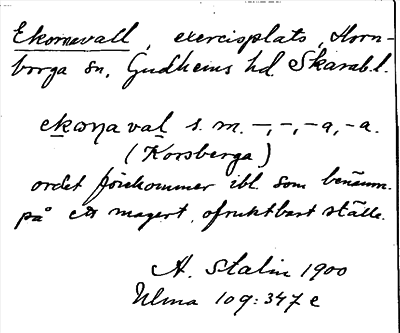 Ekornavall, exercisplats, Horn-
borga sn, Gudhems hd. Skarab. l.
ekorna val s. m. –, –, – a, – a.
(Korsberga)
ordet förekommer ibl. som benämn.
på ett magert, ofruktbart ställe.
A. Stalin 1900
Ulma 109:347 e